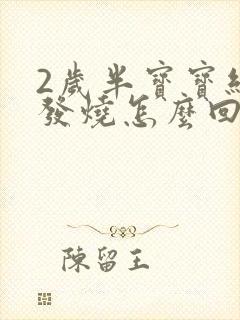 2歲半寶寶
發燒怎麼回
陳留王